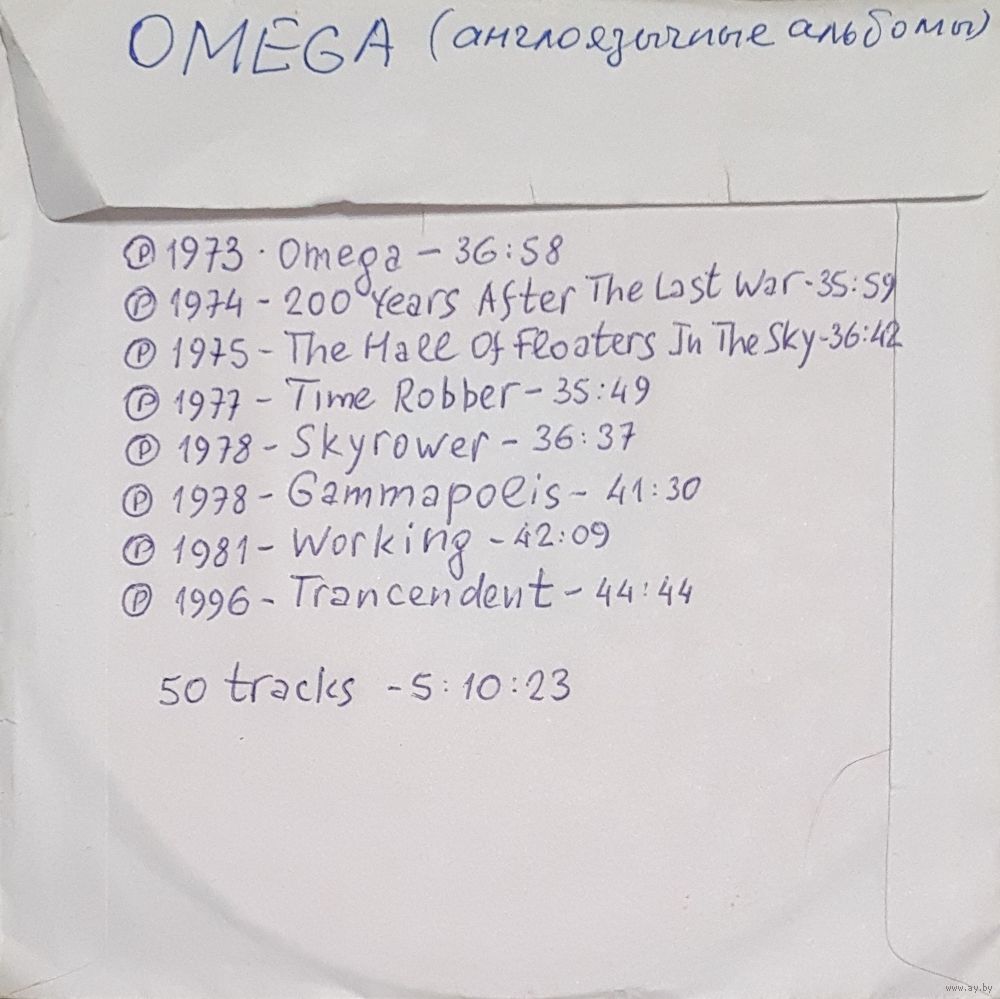 OMEGA (англоязычные альбомы)
Ⓟ 1973 · Omega - 36:58
Ⓟ 1974 - 200 Years After The Last War - 35:59
Ⓟ 1975 - The Hall Of Floaters In The Sky - 36:42
Ⓟ 1977 - Time Robber - 35:49
Ⓟ 1978 - Skyrower - 36:37
Ⓟ 1978 - Gammapolis - 41:30
Ⓟ 1981 - Working - 42:09
Ⓟ 1996 - Trancendent - 44:44
50 tracks - 5:10:23
www.ay.by